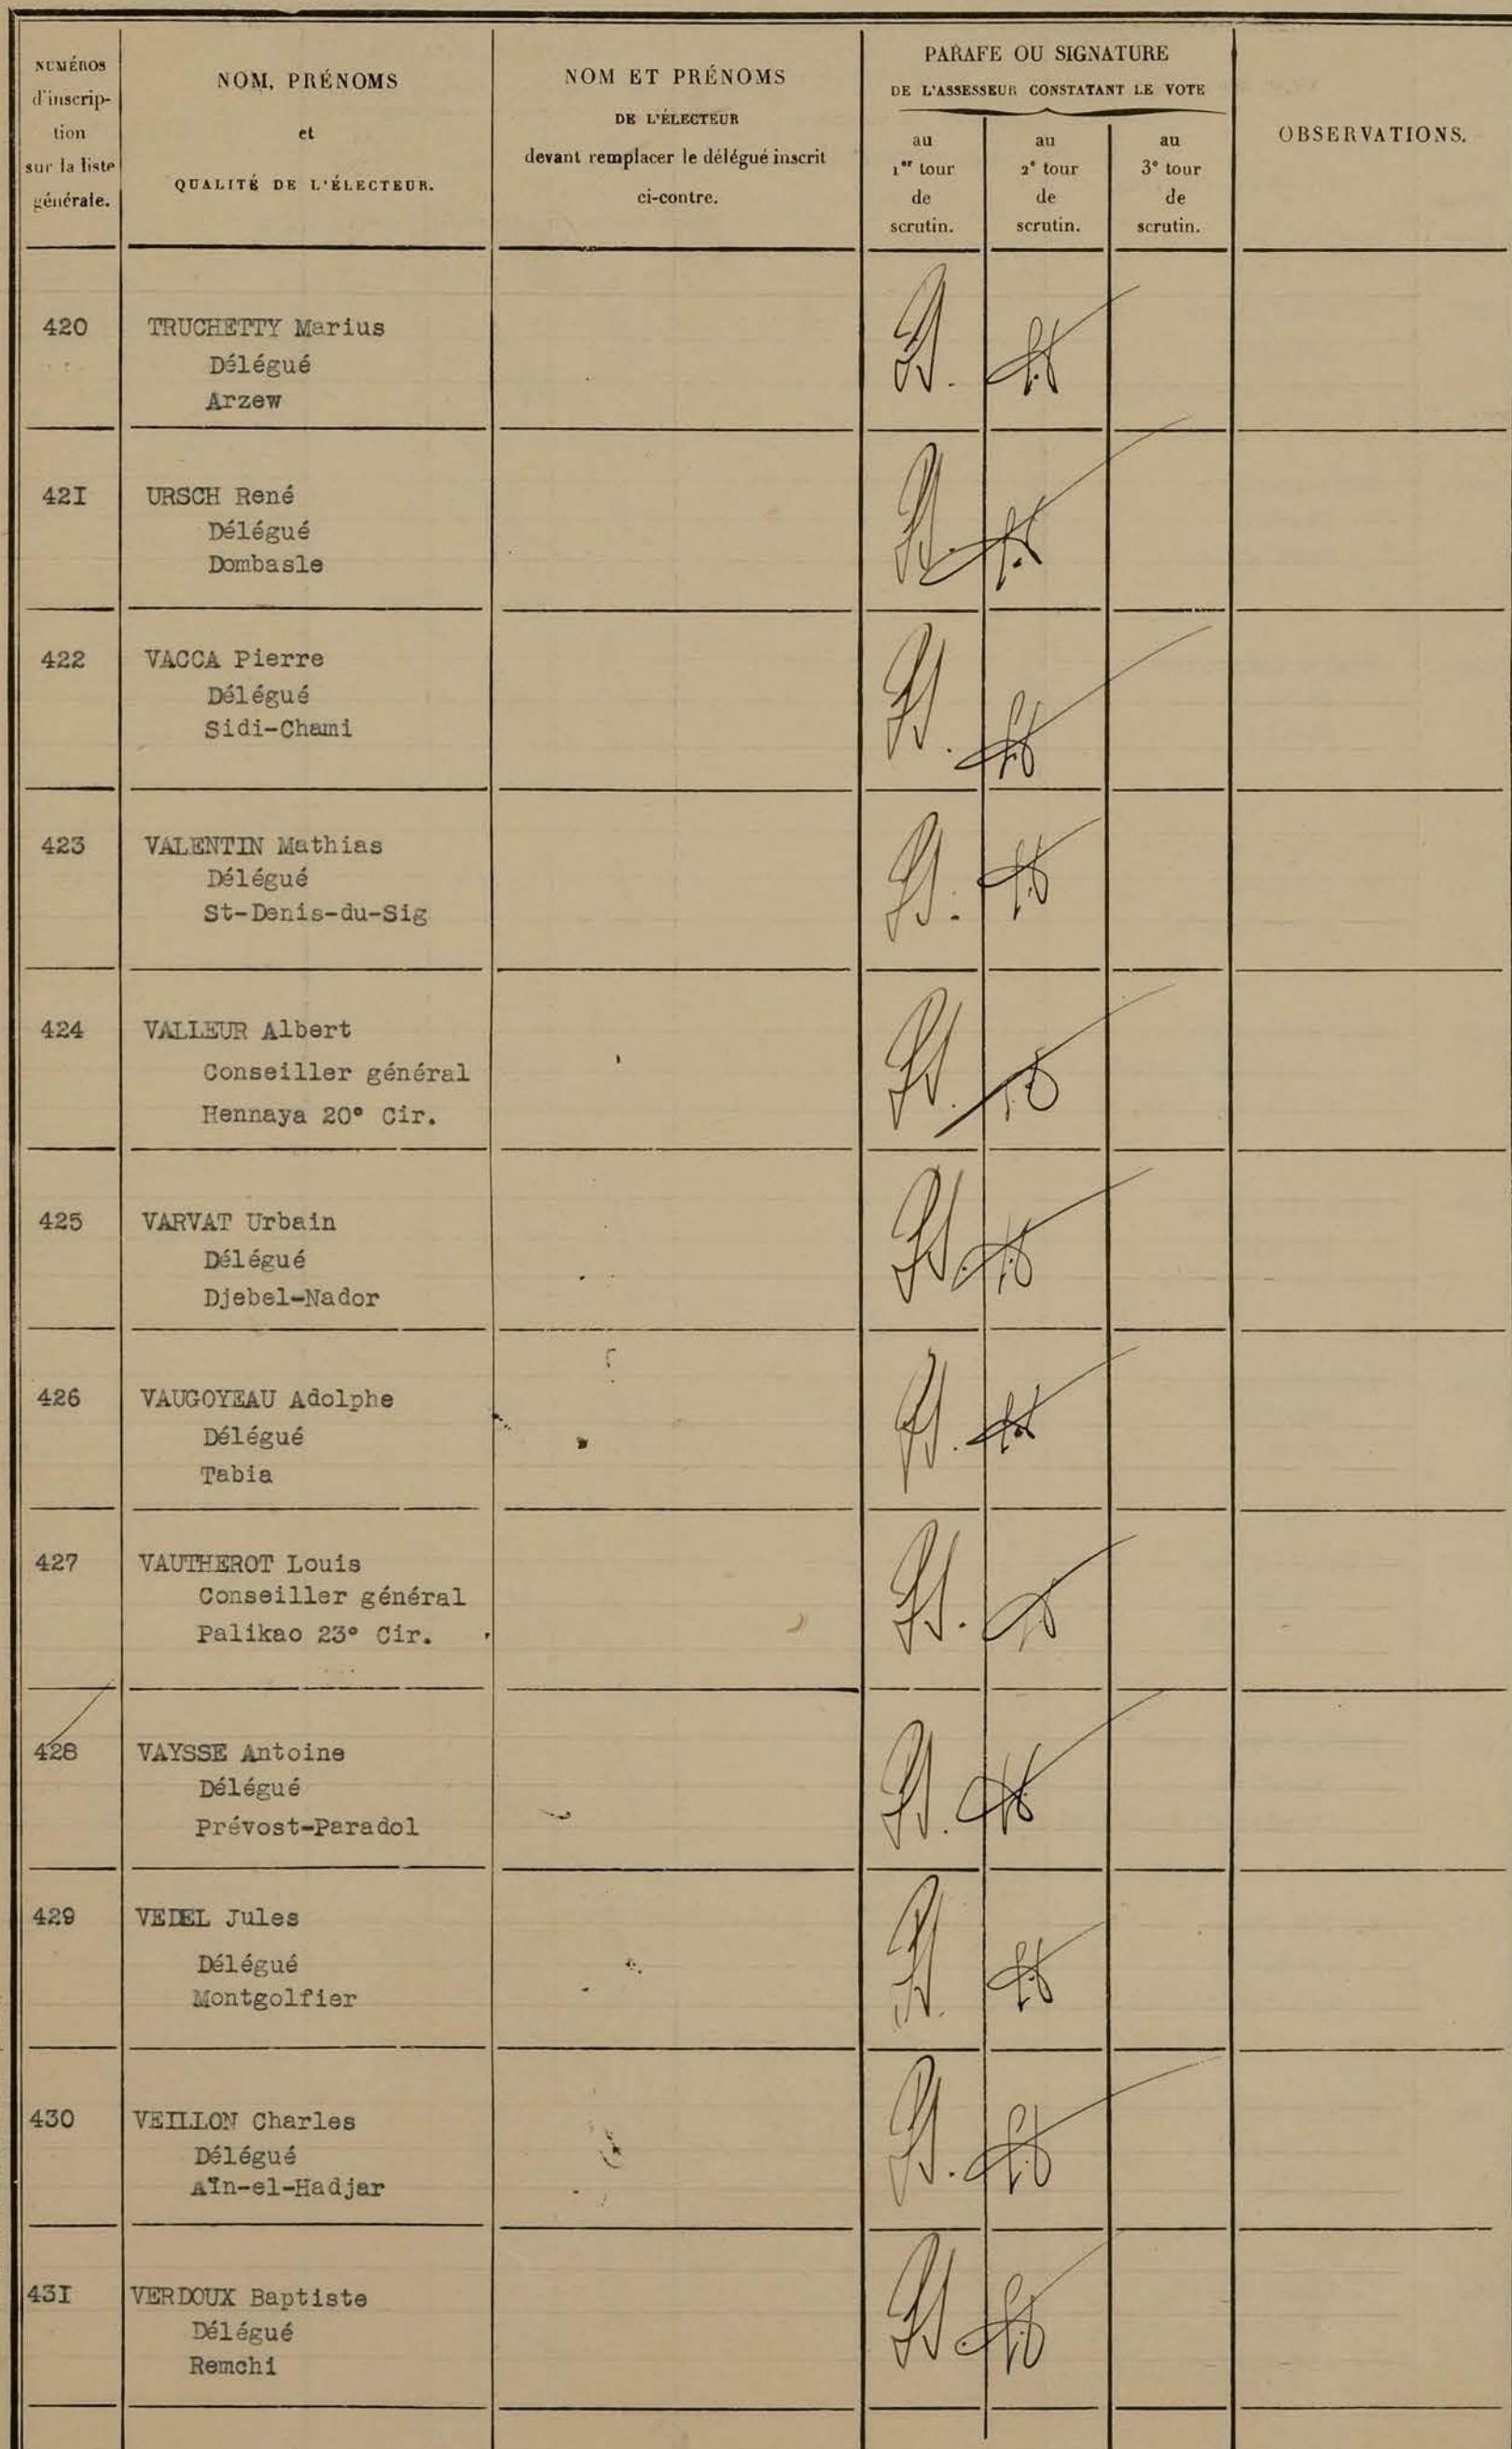 NUMÉROS
d'inscrip-
tion
sur la liste
générale.
NOM, PRÉNOMS
et
QUALITÉ DE L'ÉLECTEUR.
NOM ET PRÉNOMS
DE L'ÉLECTEUR
devant remplacer le délégué inscrit
ci-contre.
PARAFE OU SIGNATURE
DE L'ASSESSEUR CONSTATANT LE VOTE
au
1er tour
de
scrutin.
au
2e tour
de
scrutin.
au
3e tour
de
scrutin.
OBSERVATIONS.
420 TRUCHETTY Marius
Délégué
Arzew
42I URSCH René
Délégué
Dombasle
422 VACCA Pierre
Délégué
Sidi-Chami
423 VALENTIN Mathias
Délégué
St-Denis-du-Sig
424 VALLEUR Albert
Conseiller général
Hennaya 20° Cir.
425 VARVAT Urbain
Délégué
Djebel-Nador
426 VAUGOYEAU Adolphe
Délégué
Tabia
427 VAUTHEROT Louis
Conseiller général
Palikao 23° Cir.
428 VAYSSE Antoine
Délégué
Prévost-Paradol
429 VEDEL Jules
Délégué
Montgolfier
430 VEILLON Charles
Délégué
Aïn-el-Hadjar
43I VERDOUX Baptiste
Délégué
Remchi